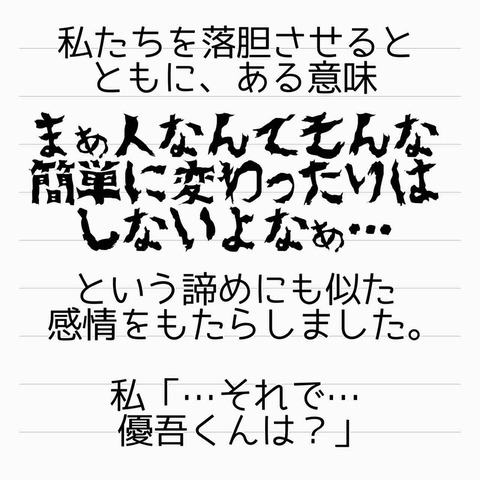 私たちを落胆させると
ともに、ある意味
まぁ人なんてそんな
簡単に変わったりは
しないよなぁ…
という諦めにも似た
感情をもたらしました。
私「…それで…
優吾くんは？」